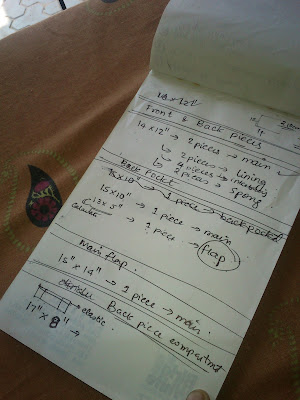 14 x 12"
Front & Back pieces
14 x 12" → 2 pieces → main
↳ 2 pieces → lining
↳ 4 pieces →
↳ 2 pieces → spong
Back Pocket
15 x 10" → 1 piece → back pocket
15 x 10" → 1 piece → main
13 x 5"
→ 1 piece → flap
Main flap.
15" x 14" → 2 piece → main.
Back piece compartment
→ elastic
17" x 8" →